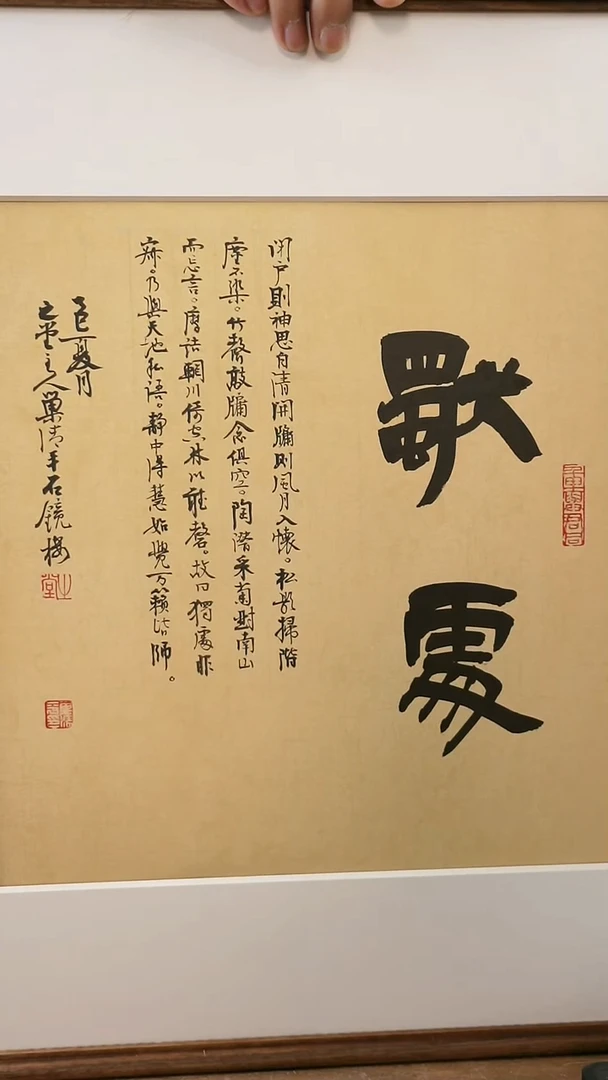 獨處
閉户則神思自清開牖則風月入懷。松影掃階
塵不染。竹聲敲牖念俱空。陶潛采菊對南山
而忘言。摩詰輞川倚空林以聽磬。故曰獨處非
寂。乃與天地私語。靜中得慧始覺万籟皆師。
乙巳夏月
之堂主人巢于石鏡樓
之堂